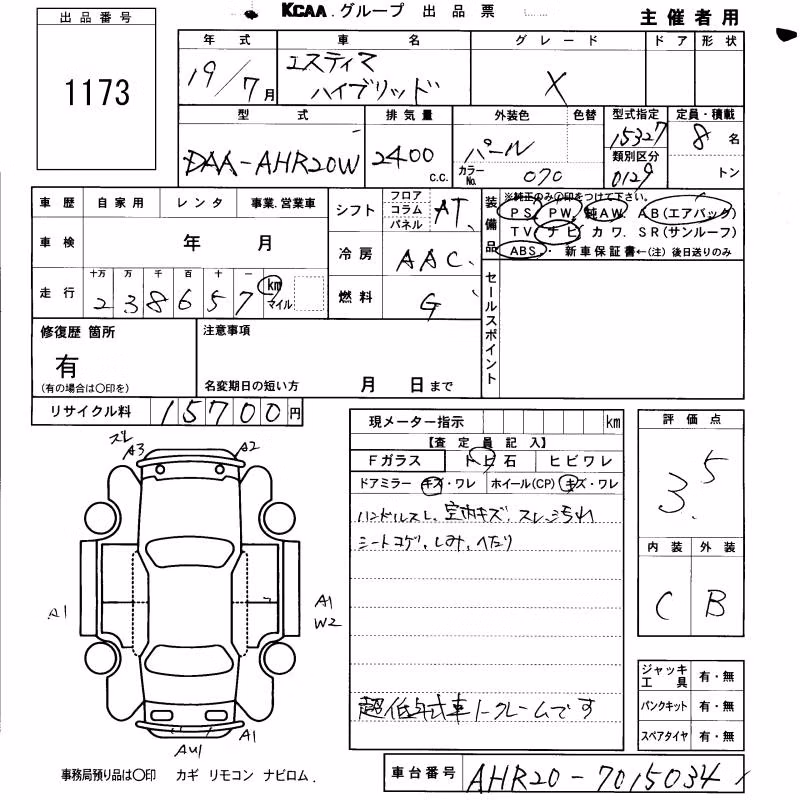 KCAA.グループ 出品票 主催者用
出品番号
1173
年式 車名 グレード ドア 形状
19/7月 エスティマ ハイブリッド X
型式 排気量 外装色 色替 型式指定 定員・積載
DAA-AHR20W 2400 c.c. パール カラーNo. 070 15327 類別区分 0129 8名 トン
車歴 自家用 レンタ 事業.営業車
車検 年 月
走行 十万 万 千 百 十 一
2 3 8 6 5 7 km マイル
シフト フロア コラム パネル AT
冷房 AAC
燃料 G
装備品 ※純正のみ〇印をつけて下さい。
PS PW 純AW AB(エアバッグ)
TV ナビ カワ SR(サンルーフ)
ABS 新車保証書←(注) 後日送りのみ
セールスポイント
修復歴 箇所
有
(有の場合は〇印を)
注意事項
名変期日の短い方 月 日まで
リサイクル料 15700円
現メーター指示 km
【査定員記入】
Fガラス トビ石 ヒビワレ
ドアミラー キズ・ワレ ホイール(CP) キズ・ワレ
ハンドルスレ、室内キズ、スレ、汚れ
シートコゲ、しみ、へたり
超低年式車ノークレームです
評価点
3.5
内装 外装
C B
ズレ
A3 A2
A1 A1
W2
AU1 A1
ジャッキ工具 有・無
パンクキット 有・無
スペアタイヤ 有・無
事務局預り品は〇印 カギ リモコン ナビロム.
車台番号 AHR20-7015034